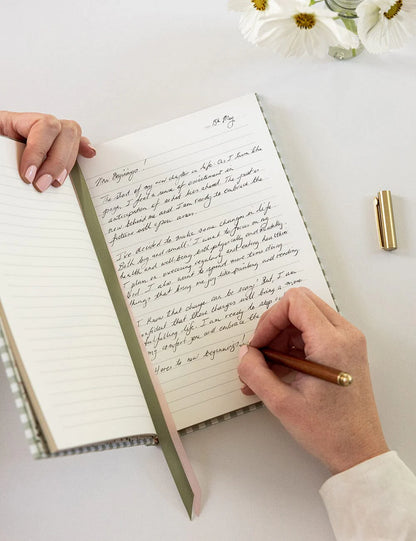 15th May
New Beginnings!
The start of my new chapter in life. As I turn the
page, I feel a sense of excitement in
anticipation of what lies ahead. The past is
now behind me and I am ready to embrace the
future with open arms.
I've decided to make some changes in life.
Both big and small. I want to focus on my
health and well being both physically and mentally.
I plan on exercising regularly and eating healthier
food. I also want to spend more time doing
things that bring me joy like painting and reading.
I know that change can be scary. But, I am
confident that these changes will bring a more
fulfilling life. I am ready to step
my comfort you will embrace the
Here to new beginnings!